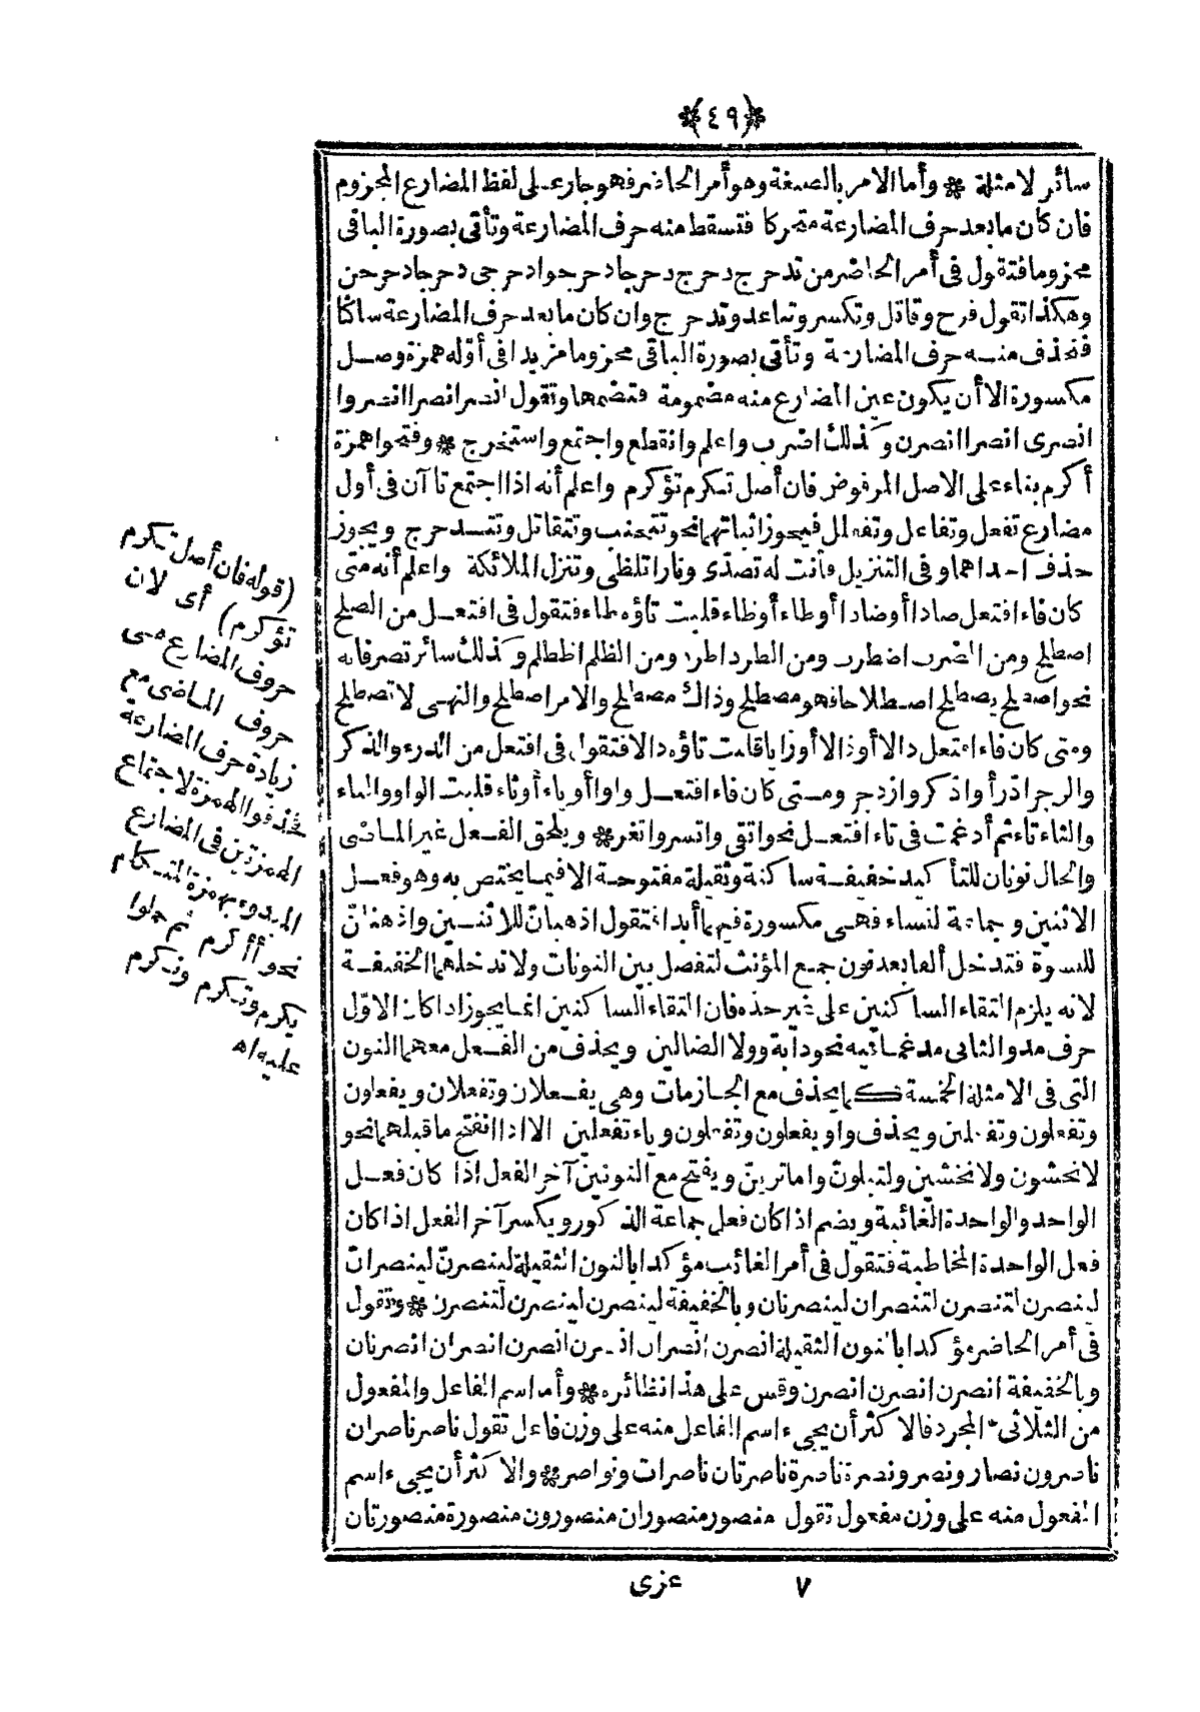 ﴿٤٩﴾
سائر الامثلة * وأما الامر بالصيغة وهو أمر الحاضر فهو جار على لفظ المضارع المجزوم
فان كان ما بعد حرف المضارعة متحركا فتسقط منه حرف المضارعة وتأتى بصورة الباقى
مجزوما فتقول فى أمر الحاضر من تدحرج دحرج دحرجا دحرجوا دحرجى دحرجا دحرجن
وهكذا تقول فرح وقاتل وتكسر وتباعد وتدحرج وان كان ما بعد حرف المضارعة ساكنا
فتحذف منه حرف المضارعة وتأتى بصورة الباقى مجزوما مزيدا فى أوله همزة وصل
مكسورة الا أن يكون عين المضارع منه مضمومة فتضمها وتقول انصر انصرا انصروا
انصرى انصرا انصرن وكذلك اضرب واعلم وانقطع واجتمع واستخرج * وفتحوا همزة
أكرم بناء على الاصل المرفوض فان أصل تكرم تؤكرم واعلم أنه اذا اجتمع تا آن فى أول
مضارع تفعل وتفاعل وتفعلل فيجوز اثباتهما نحو تتجنب وتتقاتل وتتدحرج ويجوز
حذف احداهما وفى التنزيل فأنت له تصدّى ونارا تلظى وتنزل الملائكة واعلم أنه متى
كان فاء افتعل صادا أو ضادا أو طاء أو ظاء قلبت تاؤه طاء فتقول فى افتعل من الصلح
اصطلح ومن الضرب اضطرب ومن الطرد اطرد ومن الظلم اظطلم وكذلك سائر تصرفاته
نحو اصطلح يصطلح اصطلاحا فهو مصطلح وذاك مصطلح والامر اصطلح والنهى لا تصطلح
ومتى كان فاء افتعل دالا أو ذالا أو زايا قلبت تاؤه دالا فتقول فى افتعل من الدرء والذكر
والزجر ادّرأ واذكر وازدجر ومتى كان فاء افتعل واوا أو ياء أو ثاء قلبت الواو والياء
والثاء تاء ثم أدغمت فى تاء افتعل نحو اتقى واتسر واتغر * ويلحق الفعل غير الماضى
والحال نونان للتأكيد خفيفة ساكنة وثقيلة مفتوحة الا فيما يختص به وهو فعل
الاثنين وجماعة النساء فهى مكسورة فيهما أبدا فتقول اذهبانّ للاثنين واذهبنانّ
للنسوة فتدخل ألفا بعد نون جمع المؤنث لتفصل بين النونات ولا تدخلهما الخفيفة
لانه يلزم التقاء الساكنين على غير حده فان التقاء الساكنين انما يجوز اذا كان الاوّل
حرف مد والثانى مدغما فيه نحو دابة وولا الضالين ويحذف من الفعل معهما النون
التى فى الامثلة الخمسة كما يحذف مع الجازمات وهى يفعلان وتفعلان ويفعلون
وتفعلون وتفعلين ويحذف واو يفعلون وتفعلون وياء تفعلين الا اذا انفتح ما قبلهما نحو
لا تخشون ولا تخشين ولتبلونّ واما ترينّ ويفتح مع النونين آخر الفعل اذا كان فعل
الواحد والواحدة الغائبة ويضم اذا كان فعل جماعة الذكور ويكسر آخر الفعل اذا كان
فعل الواحدة المخاطبة فتقول فى أمر الغائب مؤكدا بالنون الثقيلة لينصرنّ لينصرانّ
لينصرن لتنصرن لتنصران لينصرنان وبالخفيفة لينصرن لينصرن لتنصرن * وتقول
فى أمر الحاضر مؤكدا بالنون الثقيلة انصرن انصران انصرن انصرن انصران انصرنان
وبالخفيفة انصرن انصرن انصرن وقس على هذا نظائره * وأما اسم الفاعل والمفعول
من الثلاثى المجرد فالاكثر أن يجىء اسم الفاعل منه على وزن فاعل تقول ناصر ناصران
ناصرون نصار ونصر ونصرة ناصرة ناصرتان ناصرات ونواصر * والاكثر أن يجىء اسم
المفعول منه على وزن مفعول تقول منصور منصوران منصورون منصورة منصورتان
(قوله فان أصل تكرم
تؤكرم) أى لان
حروف المضارع هى
حروف الماضى مع
زيادة حرف المضارعة
فحذفوا الهمزة لاجتماع
الهمزتين فى المضارع
المبدوء بهمزة المتكلم
نحو أأكرم ثم حملوا
يكرم وتكرم ونكرم
عليه اه
٧ عزى